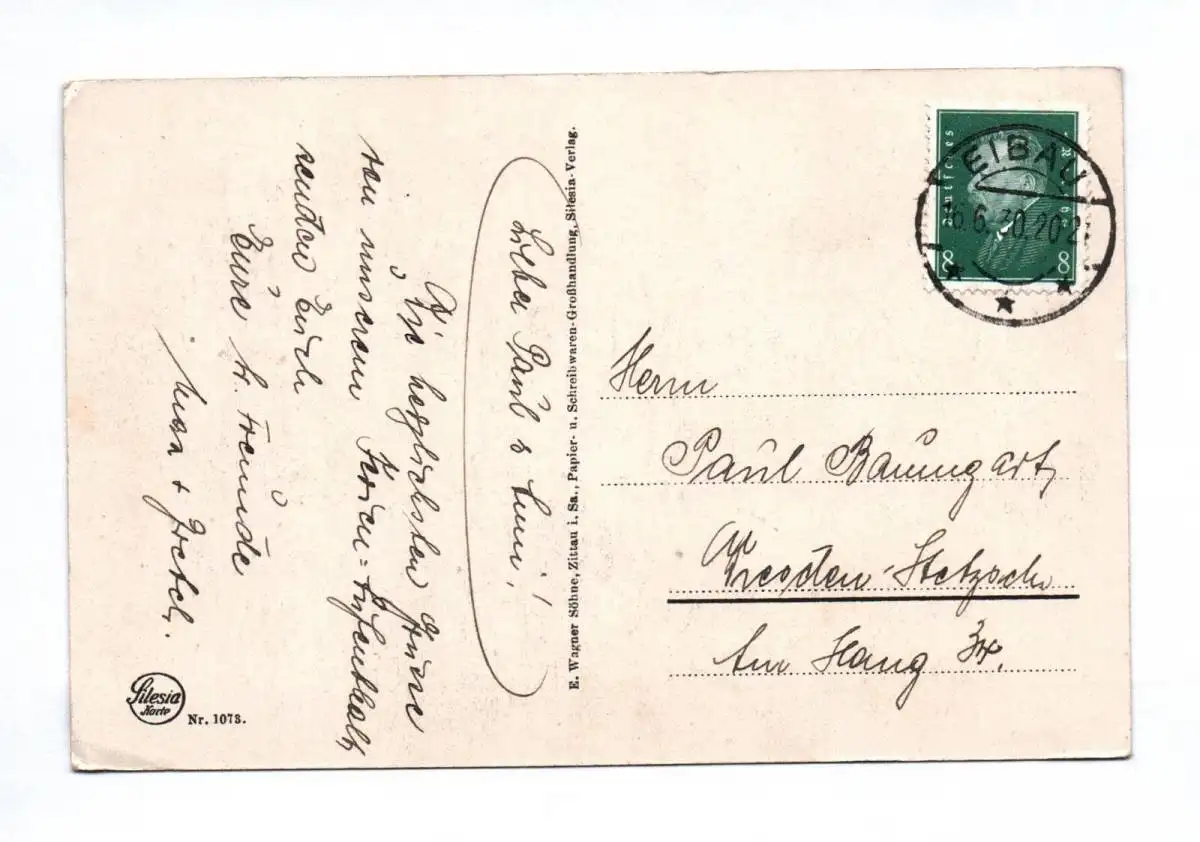 Liebe Paul & Emmi!
Die herzlichsten Grüsse
von unserem Ferien=Aufenthalt
senden Euch
Eure tr. Freunde
+ Gretel.
E. Wagner Söhne, Zittau i. Sa., Papier- u. Schreibwaren-Großhandlung, Silesia-Verlag.
Silesia
Karte
Nr. 1073.
Deutsches
8 8
EIBAU
16.6.30.20-21
Herrn
Paul Baumgart,
Dresden-Stetzsch
Am Hang